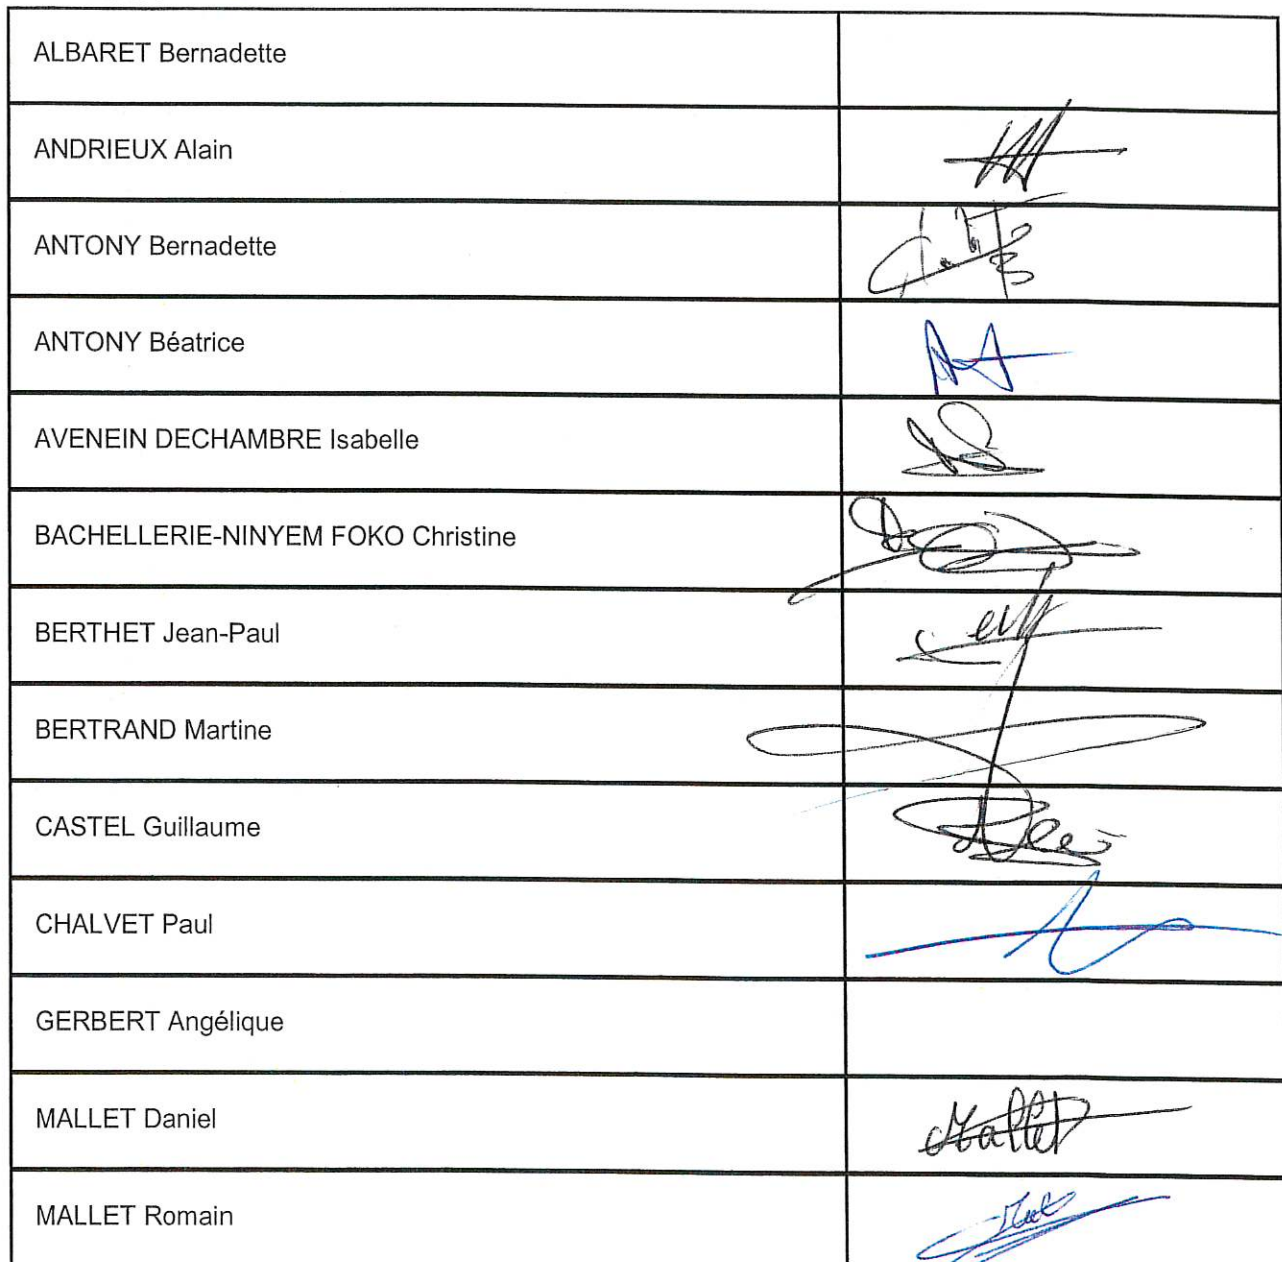 ALBARET Bernadette
ANDRIEUX Alain
ANTONY Bernadette
ANTONY Béatrice
AVENEIN DECHAMBRE Isabelle
BACHELLERIE-NINYEM FOKO Christine
BERTHET Jean-Paul
BERTRAND Martine
CASTEL Guillaume
CHALVET Paul
GERBERT Angélique
MALLET Daniel
Mallet
MALLET Romain